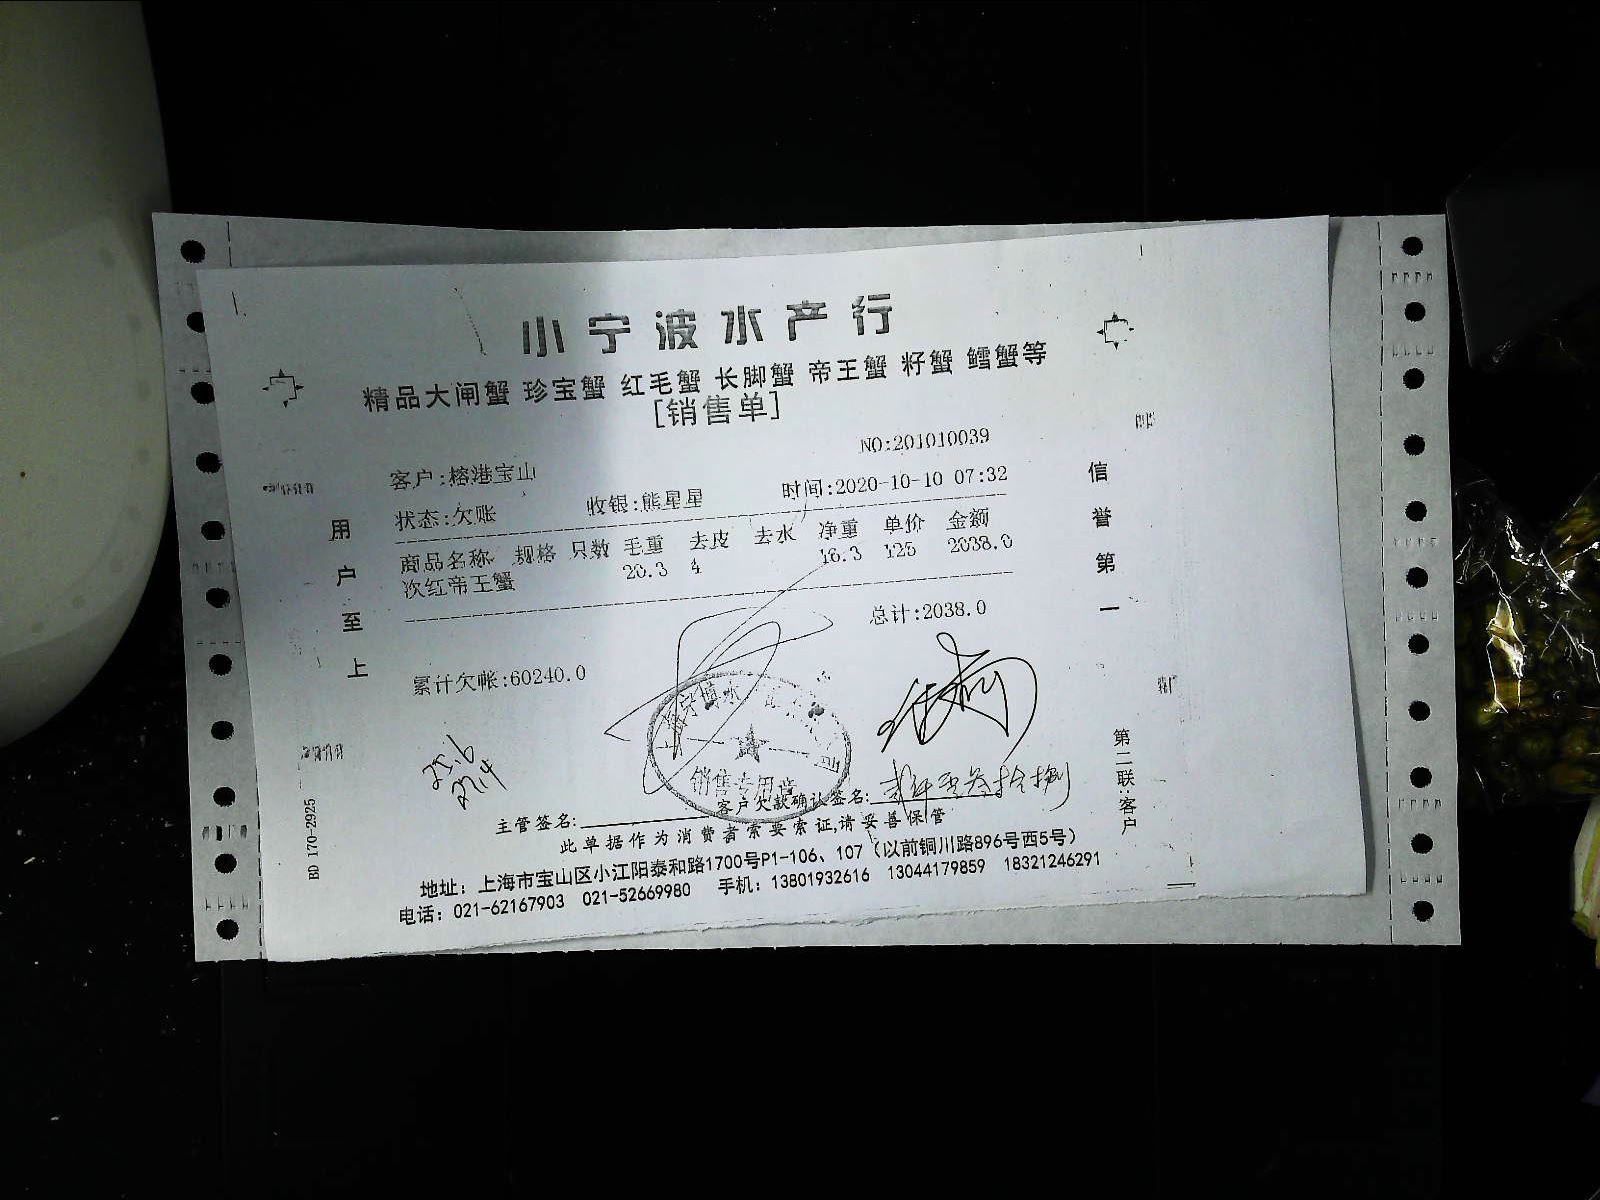 小宁波水产行
精品大闸蟹 珍宝蟹 红毛蟹 长脚蟹 帝王蟹 籽蟹 鳕蟹等
[销售单]
NO:201010039
客户:榕港宝山
状态:欠账 收银:熊星星 时间:2020-10-10 07:32
商品名称 规格 只数 毛重 去皮 去水 净重 单价 金额
次红帝王蟹 20.3 4 16.3 125 2038.0
总计:2038.0
累计欠帐:60240.0
25.6
27.4
销售专用章
主管签名: 客户欠款确认签名:
此单据作为消费者索要索证,请妥善保管
地址：上海市宝山区小江阳泰和路1700号P1-106、107（以前铜川路896号西5号）
电话：021-62167903 021-52669980 手机：13801932616 13044179859 18321246291
用户至上
信誉第一
第二联:客户
BD 170-2925